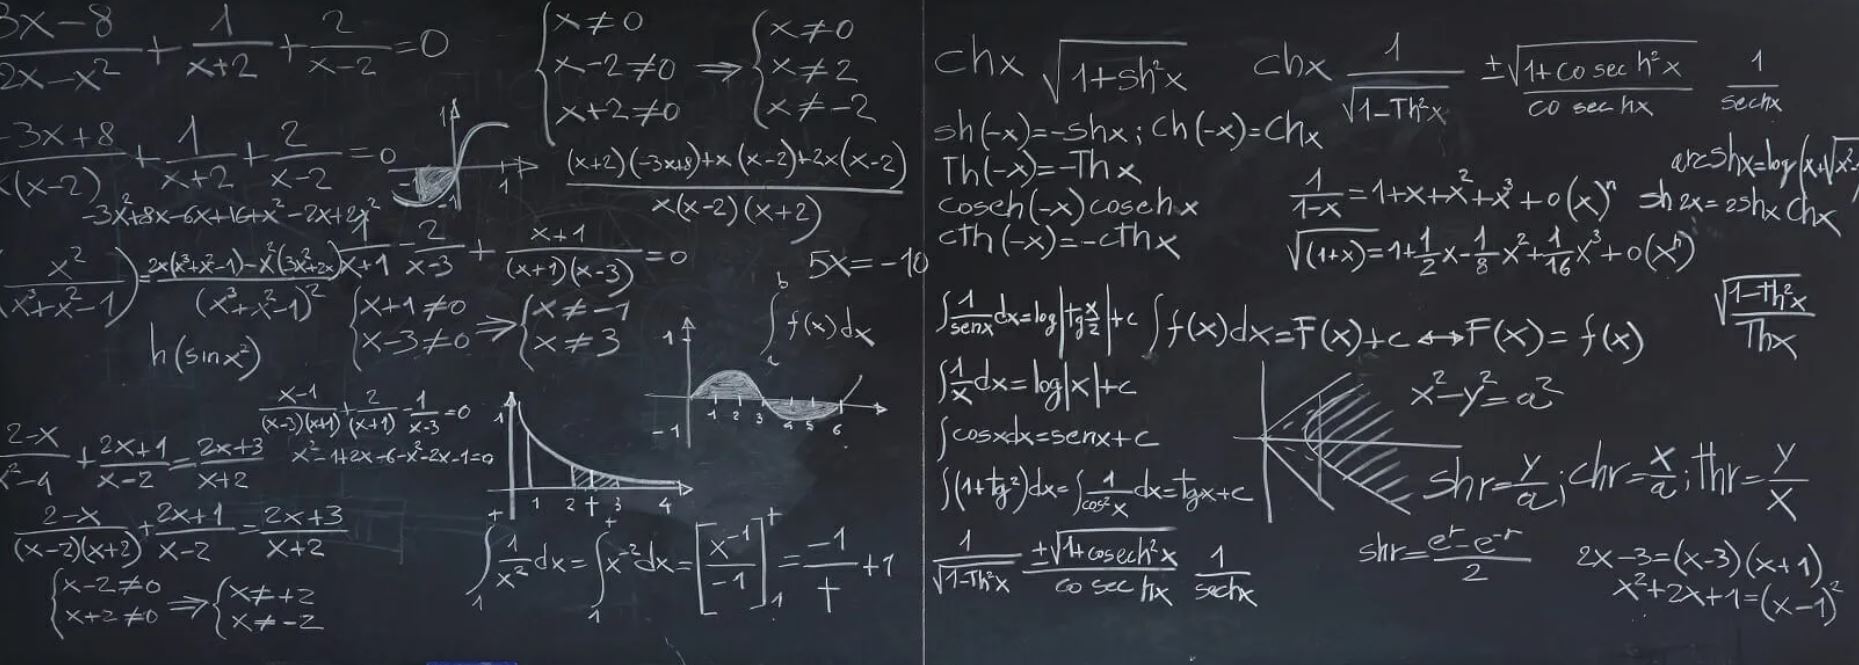 3x-8/2x-x² + 1/x+2 + 2/x-2 = 0
{x≠0 x-2≠0 x+2≠0 ⇒ {x≠0 x≠2 x≠-2
-3x+8/x(x-2) + 1/x+2 + 2/x-2 = 0
1 -1 1 -1
(x+2)(-3x+8)+x(x-2)+2x(x-2)/x(x-2)(x+2)
-3x²+8x-6x+16+x²-2x+2x²
x²/x³+x²-1) = 2x(x³+x²-1)-x²(3x²+2x)/(x³+x²-1)²
1/x+1 - 2/x-3 + x+1/(x+1)(x-3) = 0
5x=-10
{x+1≠0 x-3≠0 ⇒ {x≠-1 x≠3
∫ₐᵇ f(x)dx
h(sinx²)
1 -1 1 2 3 4 5 6
x-1/(x-3)(x+1) + 2/(x+1) - 1/x-3 = 0
x²-1+2x-6-x²-2x-1=0
2-x/x²-4 + 2x+1/x-2 = 2x+3/x+2
1 1 2 t 3 4
2-x/(x-2)(x+2) + 2x+1/x-2 = 2x+3/x+2
{x-2≠0 x+2≠0 ⇒ {x≠+2 x≠-2
∫₁ᵗ 1/x² dx = ∫₁ᵗ x⁻²dx = [x⁻¹/-1]₁ᵗ = -1/t + 1
chx √1+sh²x chx 1/√1-Th²x ±√1+cosech²x/cosechx 1/sechx
sh(-x)=-shx; ch(-x)=chx
Th(-x)=-Thx
cosech(-x)cosechx
cth(-x)=-cthx
arcshx=log(x+√x²
1/1-x = 1+x+x²+x³+o(x)ⁿ
sh2x=2shx chx
√(1+x)=1+1/2x-1/8x²+1/16x³+o(xⁿ)
√1-Th²x/Thx
∫1/senx dx=log|tg x/2|+c
∫f(x)dx=F(x)+c↔F(x)=f(x)
∫1/x dx=log|x|+c
x²-y²=a²
∫cosxdx=senx+c
∫(1+tg²)dx=∫1/cos²x dx=tgx+c
shr=y/a; chr=x/a; thr=y/x
1/√1-Th²x ±√1+cosech²x/cosechx 1/sechx
shr=eʳ-e⁻ʳ/2
2x-3=(x-3)(x+1)
x²+2x+1=(x-1)²